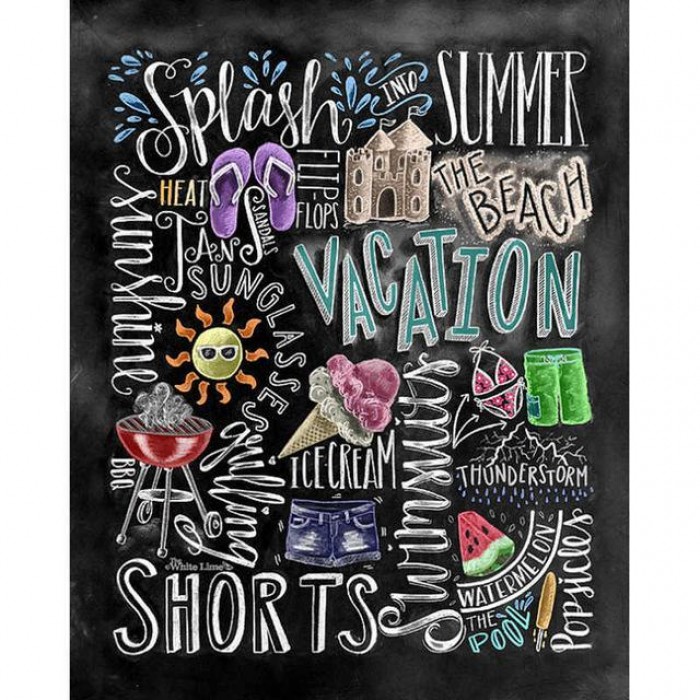 Splash INTO SUMMER
HEAT
FLIP-FLOPS
THE BEACH
Sunshine
TANS
SANDALS
SUNGLASSES
VACATION
ICE CREAM
Swimsuits
THUNDERSTORM
BBQ
Grilling
WATERMELON
THE POOL
Popsicles
The White Lime
SHORTS